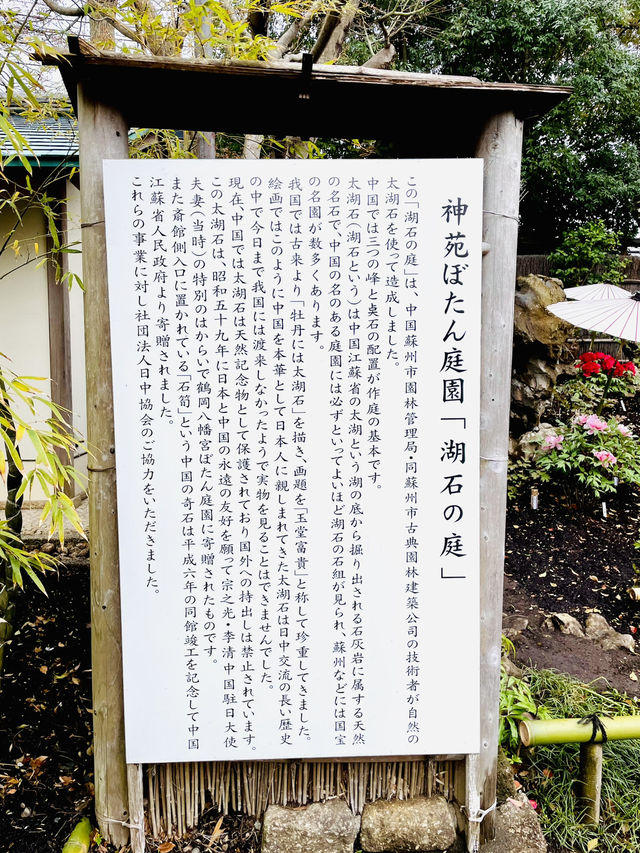 神苑ぼたん庭園「湖石の庭」
この「湖石の庭」は、中国蘇州市園林管理局・同蘇州市古典園林建築公司の技術者が自然の
太湖石を使って造成しました。
中国では三つの峰と奥石の配置が作庭の基本です。
太湖石(湖石という)は中国江蘇省の太湖という湖の底から掘り出される石灰岩に属する天然
の名石で、中国の名のある庭園には必ずといってよいほど湖石の石組が見られ、蘇州などには国宝
の名園が数多くあります。
我国では古来より「牡丹には太湖石」を描き、画題を「玉堂富貴」と称して珍重してきました。
絵画ではこのように中国を本家として日本人に親しまれてきた太湖石は日中交流の長い歴史
の中で今日まで我国には渡来しなかったようで実物を見ることはできませんでした。
現在、中国では太湖石は天然記念物として保護されており国外への持出しは禁止されています。
この太湖石は、昭和五十九年に日本と中国の永遠の友好を願って宗之光・李清中国駐日大使
夫妻(当時)の特別のはからいで鶴岡八幡宮ぼたん庭園に寄贈されたものです。
また斎館側入口に置かれている「石筍」という中国の奇石は平成六年の同館竣工を記念して中国
江蘇省人民政府より寄贈されました。
これらの事業に対し社団法人日中協会のご協力をいただきました。